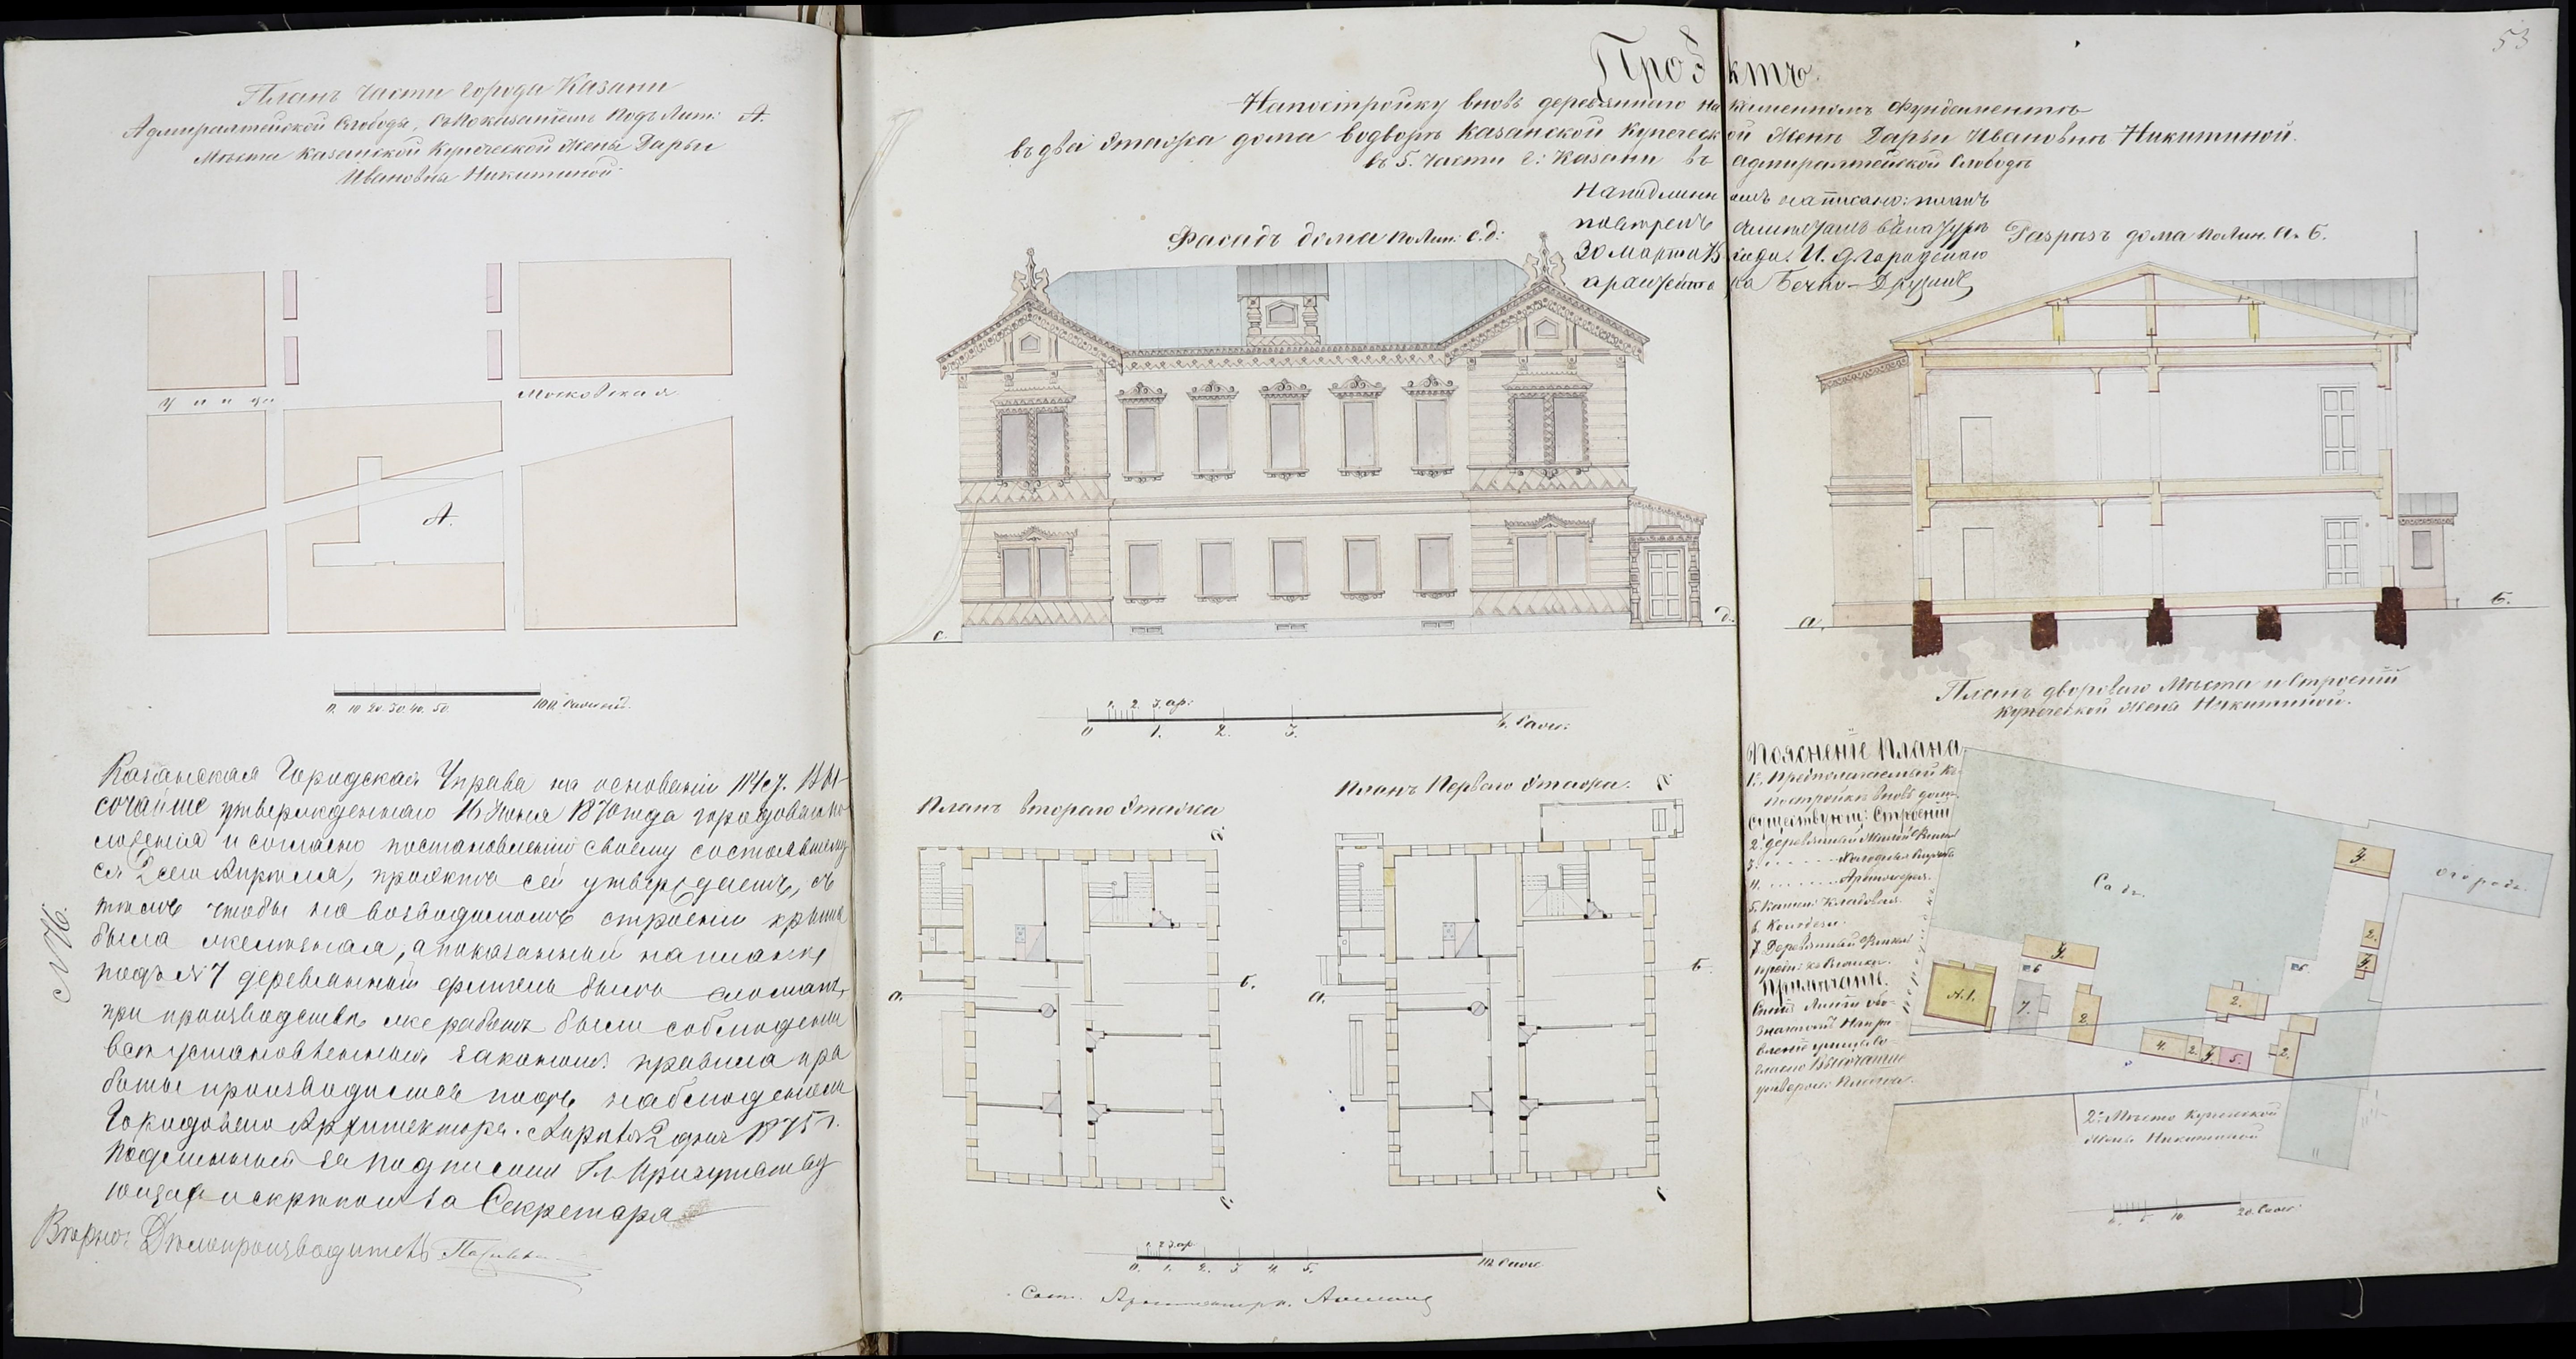 Планъ части города Казани
Адмиралтейской Слободы, съ показаніемъ подъ Лит: А.
Мѣста Казанской Купеческой Жены Дарьи
Ивановны Никитиной.
Улица
Московская.
А.
0. 10 20. 30. 40. 50. 100 Саженей.
Казанская Городская Управа на основаніи 114 ст. Вы-
сочайше утвержденнаго 16 Іюня 1870 года городоваго по-
ложенія и согласно постановленію своему состоявшему-
ся 2 сего Апрѣля, проэктъ сей утверждаетъ, съ
тѣмъ чтобы на возводимомъ строеніи крыша
была желѣзная, а показанный на планѣ
подъ № 7 деревянный флигель былъ сломанъ,
при производствѣ же работъ были соблюдены
всѣ установленныя закономъ правила и ра-
боты производились подъ наблюденіемъ
Городоваго Архитектора. Апрѣля 2 дня 1875 г.
Подлинный за подписомъ Гг. Присутству-
ющихъ и скрѣпою за Секретаря
Вѣрно: Дѣлопроизводитель
М.К.
53
Проэктъ
На постройку вновь деревяннаго на каменномъ фундаментѣ
въ два этажа дома во дворѣ Казанской Купеческой Жены Дарьи Ивановны Никитиной.
въ 5. части г: Казани въ адмиралтейской Слободѣ
На подлинномъ написано: планъ
30 Марта 75 года. И. д. городскаго
архитектора
Фасадъ дома по Лин: с. д:
Разрѣзъ дома по Лин. а. б.
с.
д.
а.
б.
1. 2. 3. ар:
0 1. 2. 3. 6. Саже:
Планъ втораго этажа
Планъ Перваго этажа.
д.
д.
а.
б.
а.
б.
с.
с.
1. 2. 3. ар.
0. 1. 2. 3. 4. 5. 10. Саже.
Сост. Архитекторъ
Планъ двороваго Мѣста и строеній
Купеческой Жены Никитиной.
Поясненіе Плана
1. Предполагаемый къ
постройкѣ вновь домъ
существующ: Строеній
2. деревянный Жилой Флигель
3. Холодныя Службы
4.
5. Камен: Кладовая.
6. Колодези.
7. Деревянный Флигель
Примѣчаніе.
Синія Линіи обо-
значаютъ Напра-
вленіе улицъ со-
гласно Высочайше
утвержд: Плана.
Садъ.
Огородъ.
3.
3.
2.
3.
6
6.
А.1.
7.
2.
2.
4. 2. 3. 5.
2.
2.е Мѣсто Купеческой
Жены Никитиной
0. 5 10. 20. Саже: